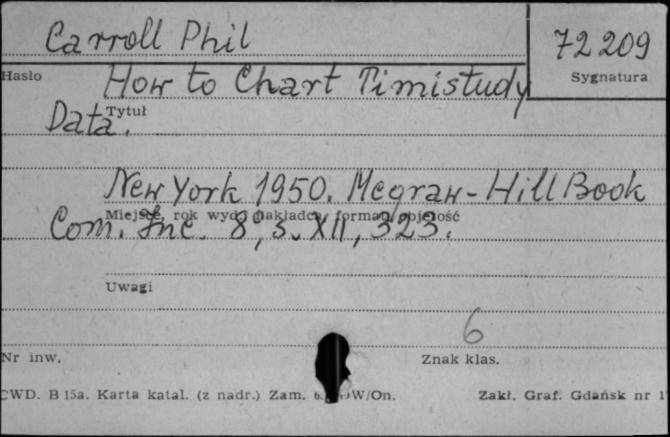 Carroll Phil
72 209
Hasło
Sygnatura
How to Chart Timistudy
Tytuł
Data.
New York 1950. Mcgraw-Hill Book
Miejsce, rok wyd., nakładca, format, objętość
Com. Inc. 8°, s. XII, 323.
Uwagi
6
Nr inw.
Znak klas.
CWD. B 15a. Karta katal. (z nadr.) Zam. W/On.
Zakł. Graf. Gdańsk nr 1